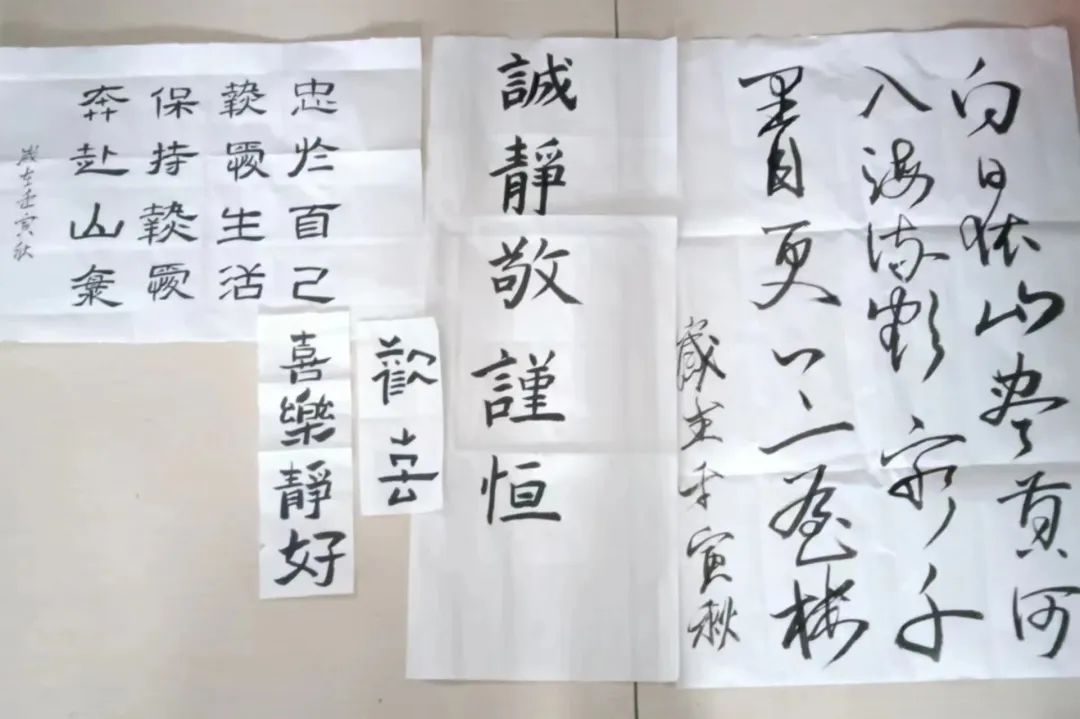 白日依山盡黄河
入海流欲窮千
里目更上一層楼
歲在壬寅秋
誠靜敬謹恒
歡喜
喜樂靜好
忠於自己
熱愛生活
保持熱愛
奔赴山海
歲在壬寅秋